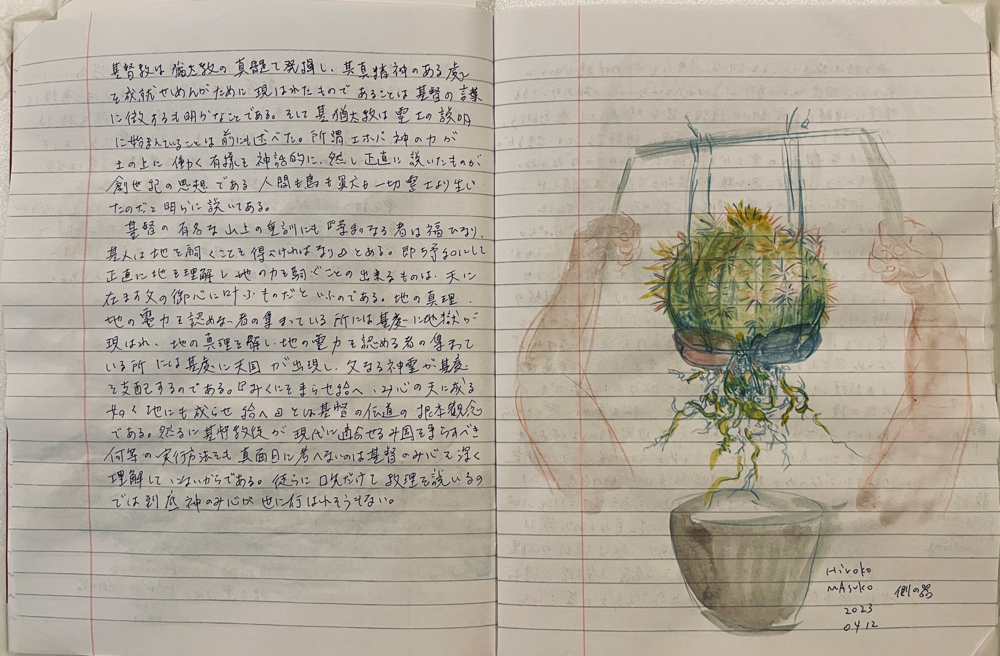 基督教は猶太教の真髄を発揮し、其真精神のある處
を成就せしめんがために現はれたものであることは基督の言葉
に徴するも明らかなことである。そして其猶太教は霊土の説明
に始まっていることは前にも述べた。所謂エホバ神の力が
土の上に働く有様を神話的に、然し正直に説いたものが
創世記の思想である 人間も鳥も獣も一切霊土より生じ
たのだと明らかに説いてある。
基督の有名な山上の垂訓にも『柔和なる者は福ひなり、
其人は地を嗣ぐことを得べければなり』とある。即ち柔和にして
正直に地を理解し地の力を嗣ぐことの出来るものは、天に
在ます父の御心に叶ふものだといふのである。地の真理、
地の霊力を認めない者の集まっている所には其處に地獄が
現はれ、地の真理を解し地の霊力を認める者の集まって
いる所には其處に天国が出現し、父なる神霊が其處
を支配するのである。『みくにを来らせ給へ、み心の天に成る
如く地にも成らせ給へ』とは基督の伝道の根本観念
である。然るに基督教徒が現代に適合せるみ国を来らすべき
何等の実行方法をも真面目に考へないのは基督のみ心を深く
理解していないからである。徒らに口先だけで教理を説いるの
では到底神のみ心が世に行はれそうもない。
Hiroko
mAsuko
2023
04 12
側の器